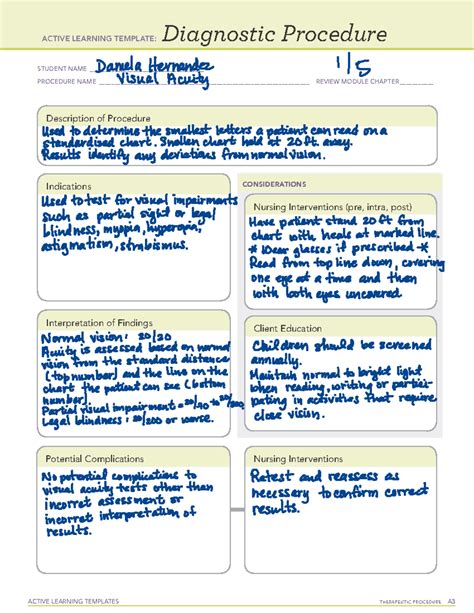 ACTIVE LEARNING TEMPLATE: Diagnostic Procedure
STUDENT NAME Daniela Hernandez 1/5
PROCEDURE NAME Visual Acuity REVIEW MODULE CHAPTER
Description of Procedure
Used to determine the smallest letters a patient can read on a
standardised chart. Snellen chart held at 20 ft. away.
Results identify any deviations from normal vision.
Indications
Used to test for visual impairments
such as partial sight or legal
blindness, myopia, hyperopia,
astigmatism, strabismus.
CONSIDERATIONS
Nursing Interventions (pre, intra, post)
Have patient stand 20 ft from
chart with heals at marked line.
* Wear glasses if prescribed *
Read from top line down, covering
one eye at a time and then
with both eyes uncovered
Interpretation of Findings
Normal vision: 20/20
Acuity is assessed based on normal
vision from the standard distance
(top number) and the line on the
chart the patient can see (bottom
number).
Partial visual impairment = 20/40 to 20/200
Legal blindness: 20/200 or worse.
Client Education
Children should be screened
annually.
Maintain normal to bright light
when reading, writing or partici-
pating in activities that require
close vision.
Potential Complications
No potential complications to
visual acuity tests other than
incorrect assessment or
incorrect interpretation of
results.
Nursing Interventions
Retest and reassess as
necessary to confirm correct
results.
ACTIVE LEARNING TEMPLATES THERAPEUTIC PROCEDURE A3